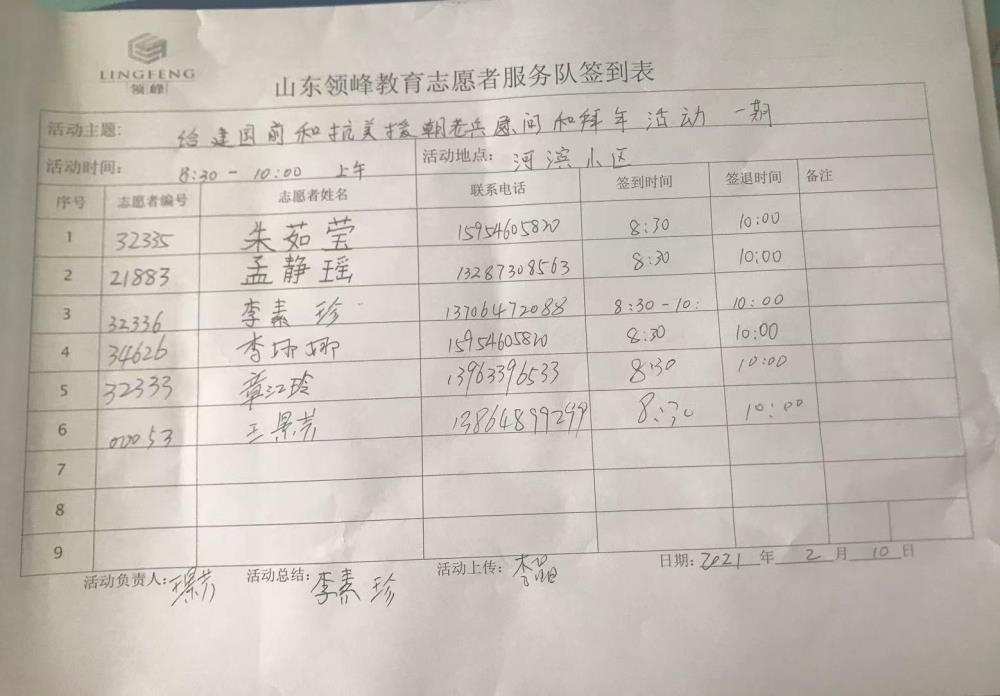 LINGFENG
领峰
山东领峰教育志愿者服务队签到表
活动主题: 给建国前和抗美援朝老兵慰问和拜年活动 一期
活动时间: 8:30 - 10:00 上午 活动地点: 河滨小区
序号 志愿者编号 志愿者姓名 联系电话 签到时间 签退时间 备注
1 32335 朱茹莹 15954605820 8:30 10:00
2 21883 孟静瑶 13287308563 8:30 10:00
3 32336 李素珍 13706472088 8:30-10: 10:00
4 34626 李娜娜 15954605820 8:30 10:00
5 32333 章江玲 13963396533 8:30 10:00
6 00053 王景芳 13864899299 8:30 10:00
7
8
9
活动负责人: 王景芳 活动总结: 李素珍 活动上传: 日期: 2021 年 2 月 10 日